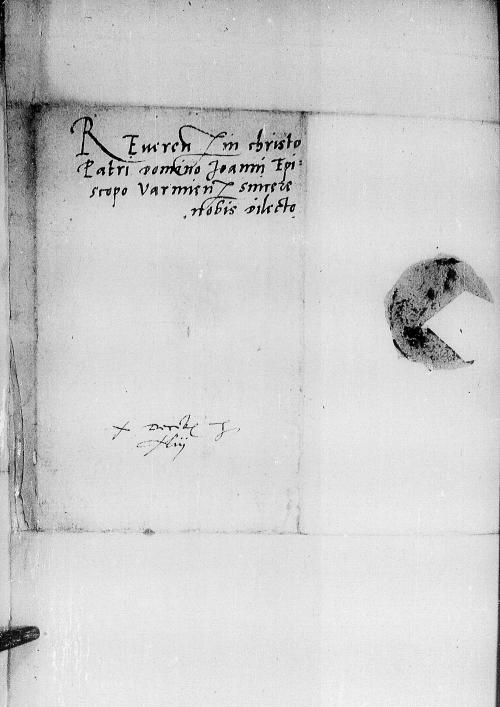 REveren in christo
Patri domino Joanni Epi-
scopo Varmien sincere
nobis dilecto
xliij